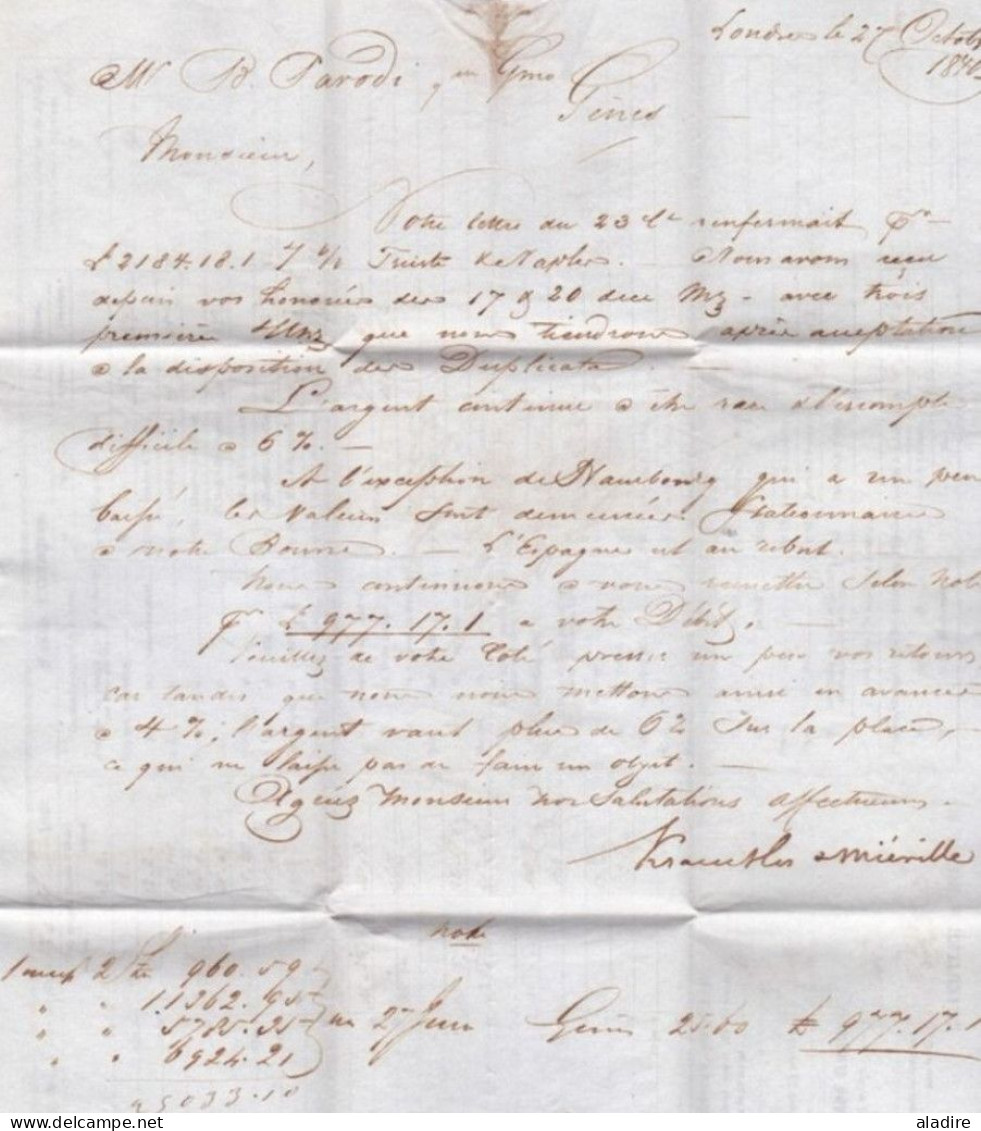 Londres le 27 Octob
1840
Mr B. Parodi qm Gmo
Gênes
Monsieur,
Votre lettre du 23 ct renfermait
£ 2184.18.1 Trieste & Naples. Nous avons reçu
depuis vos honorées des 17 & 20 avec trois
première que nous tiendrons après acceptation
a la disposition des Duplicata.
L'argent continue a être rare & l'escompte
difficile a 6 %.
A l'exception de Hambourg qui a un peu
baissé, les valeurs sont demeurées stationnaires
a notre Bourse. L'Espagne est au rebut.
Nous continuons a vous remettre selon note
£ 977.17.1 a votre Débit.
Veuillez de votre Coté presser un peu vos retours
car tandis que nous nous mettons ainsi en avances
a 4 %, l'argent vaut plus de 6 % sur la place,
ce qui ne laisse pas de faire un objet.
Agréez Monsieur nos Salutations affectueuses
Kraeutler & Miéville
Note
960.59
11362.95
5785.35
6924.21
25033.10
27 Gênes 25.60 £ 977.17.1
aladire